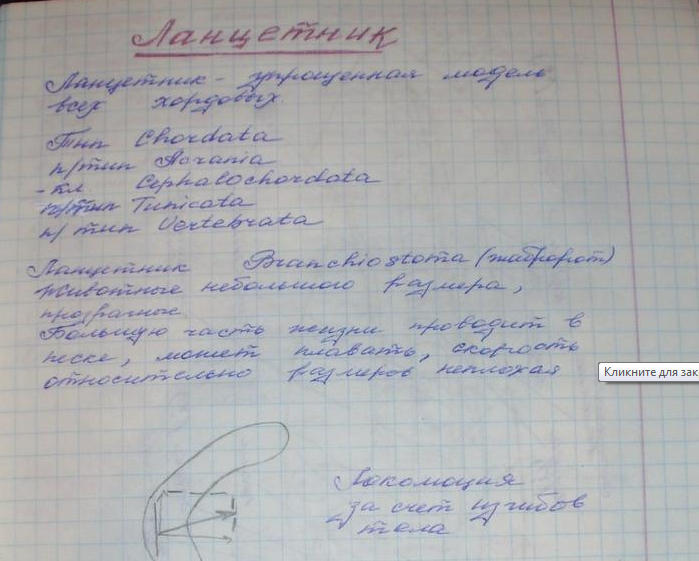 Ланцетник
Ланцетник - упрощенная модель
всех хордовых.
Тип Chordata
п/тип Acrania
- кл. Cephalochordata
п/тип Tunicata
п/тип Vertebrata
Ланцетник Branchiostoma (жабророт)
Животные небольшого размера,
прозрачные
Большую часть жизни проводит в
песке, может плавать, скорость
относительно размеров неплохая
Кликните для зак
Локомоция
за счет изгибов
тела